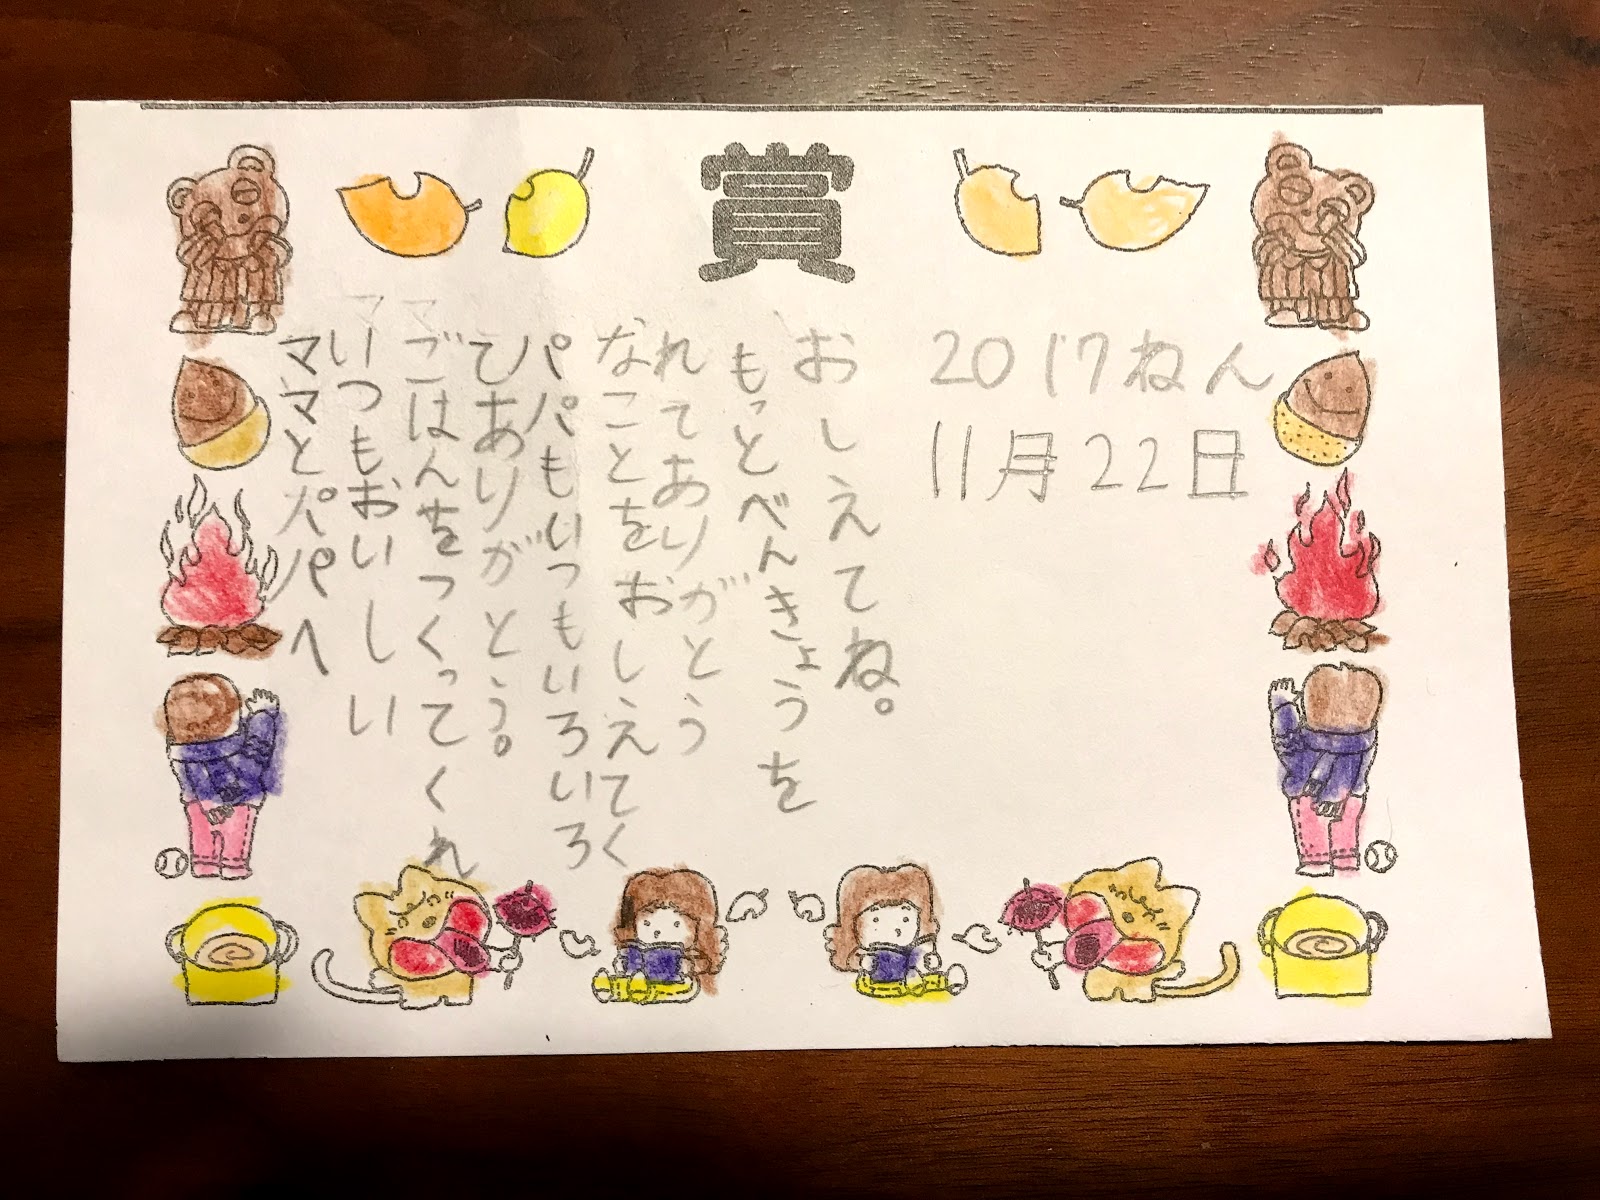 賞
ママとパパへ
いつもおいしい
ごはんをつくってくれ
てありがとう。
パパもいつもいろいろ
なことをおしえてく
れてありがとう
もっとべんきょうを
おしえてね。
2017ねん
11月22日